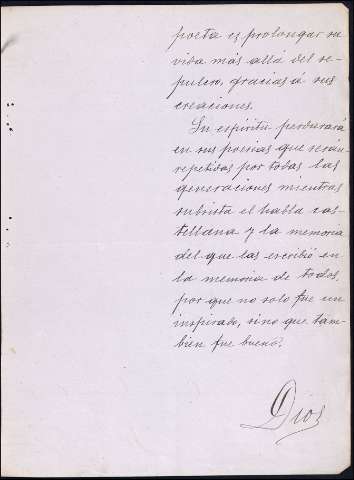 poeta es prolongar su
vida más allá del se-
pulcro, gracias á sus
creaciones.
Su espíritu perdurará
en sus poesías que serán
repetidas por todas las
generaciones mientras
subsista el habla cas-
tellana y la memoria
del que las escribió en
la memoria de todos,
por que no solo fue un
inspirado, sino que tam-
bién fue bueno.
Dios